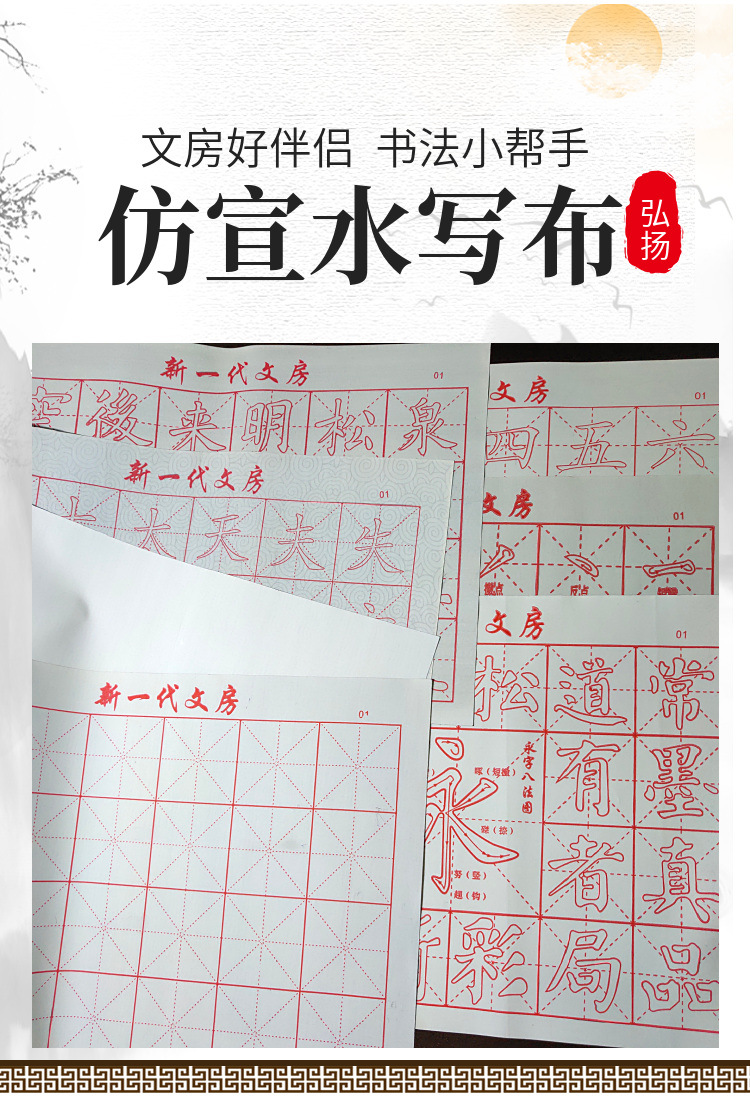 文房好伴侣 书法小帮手
仿宣水写布
弘扬
新一代文房
01
後来明松泉
文房
01
四五六
新一代文房
01
大天夫失
文房
01
反点
文房
01
松道常
永字八法图
啄(短撇)
磔(捺)
努(竖)
趯(钩)
永
有墨
者真
彩局品
新一代文房
01